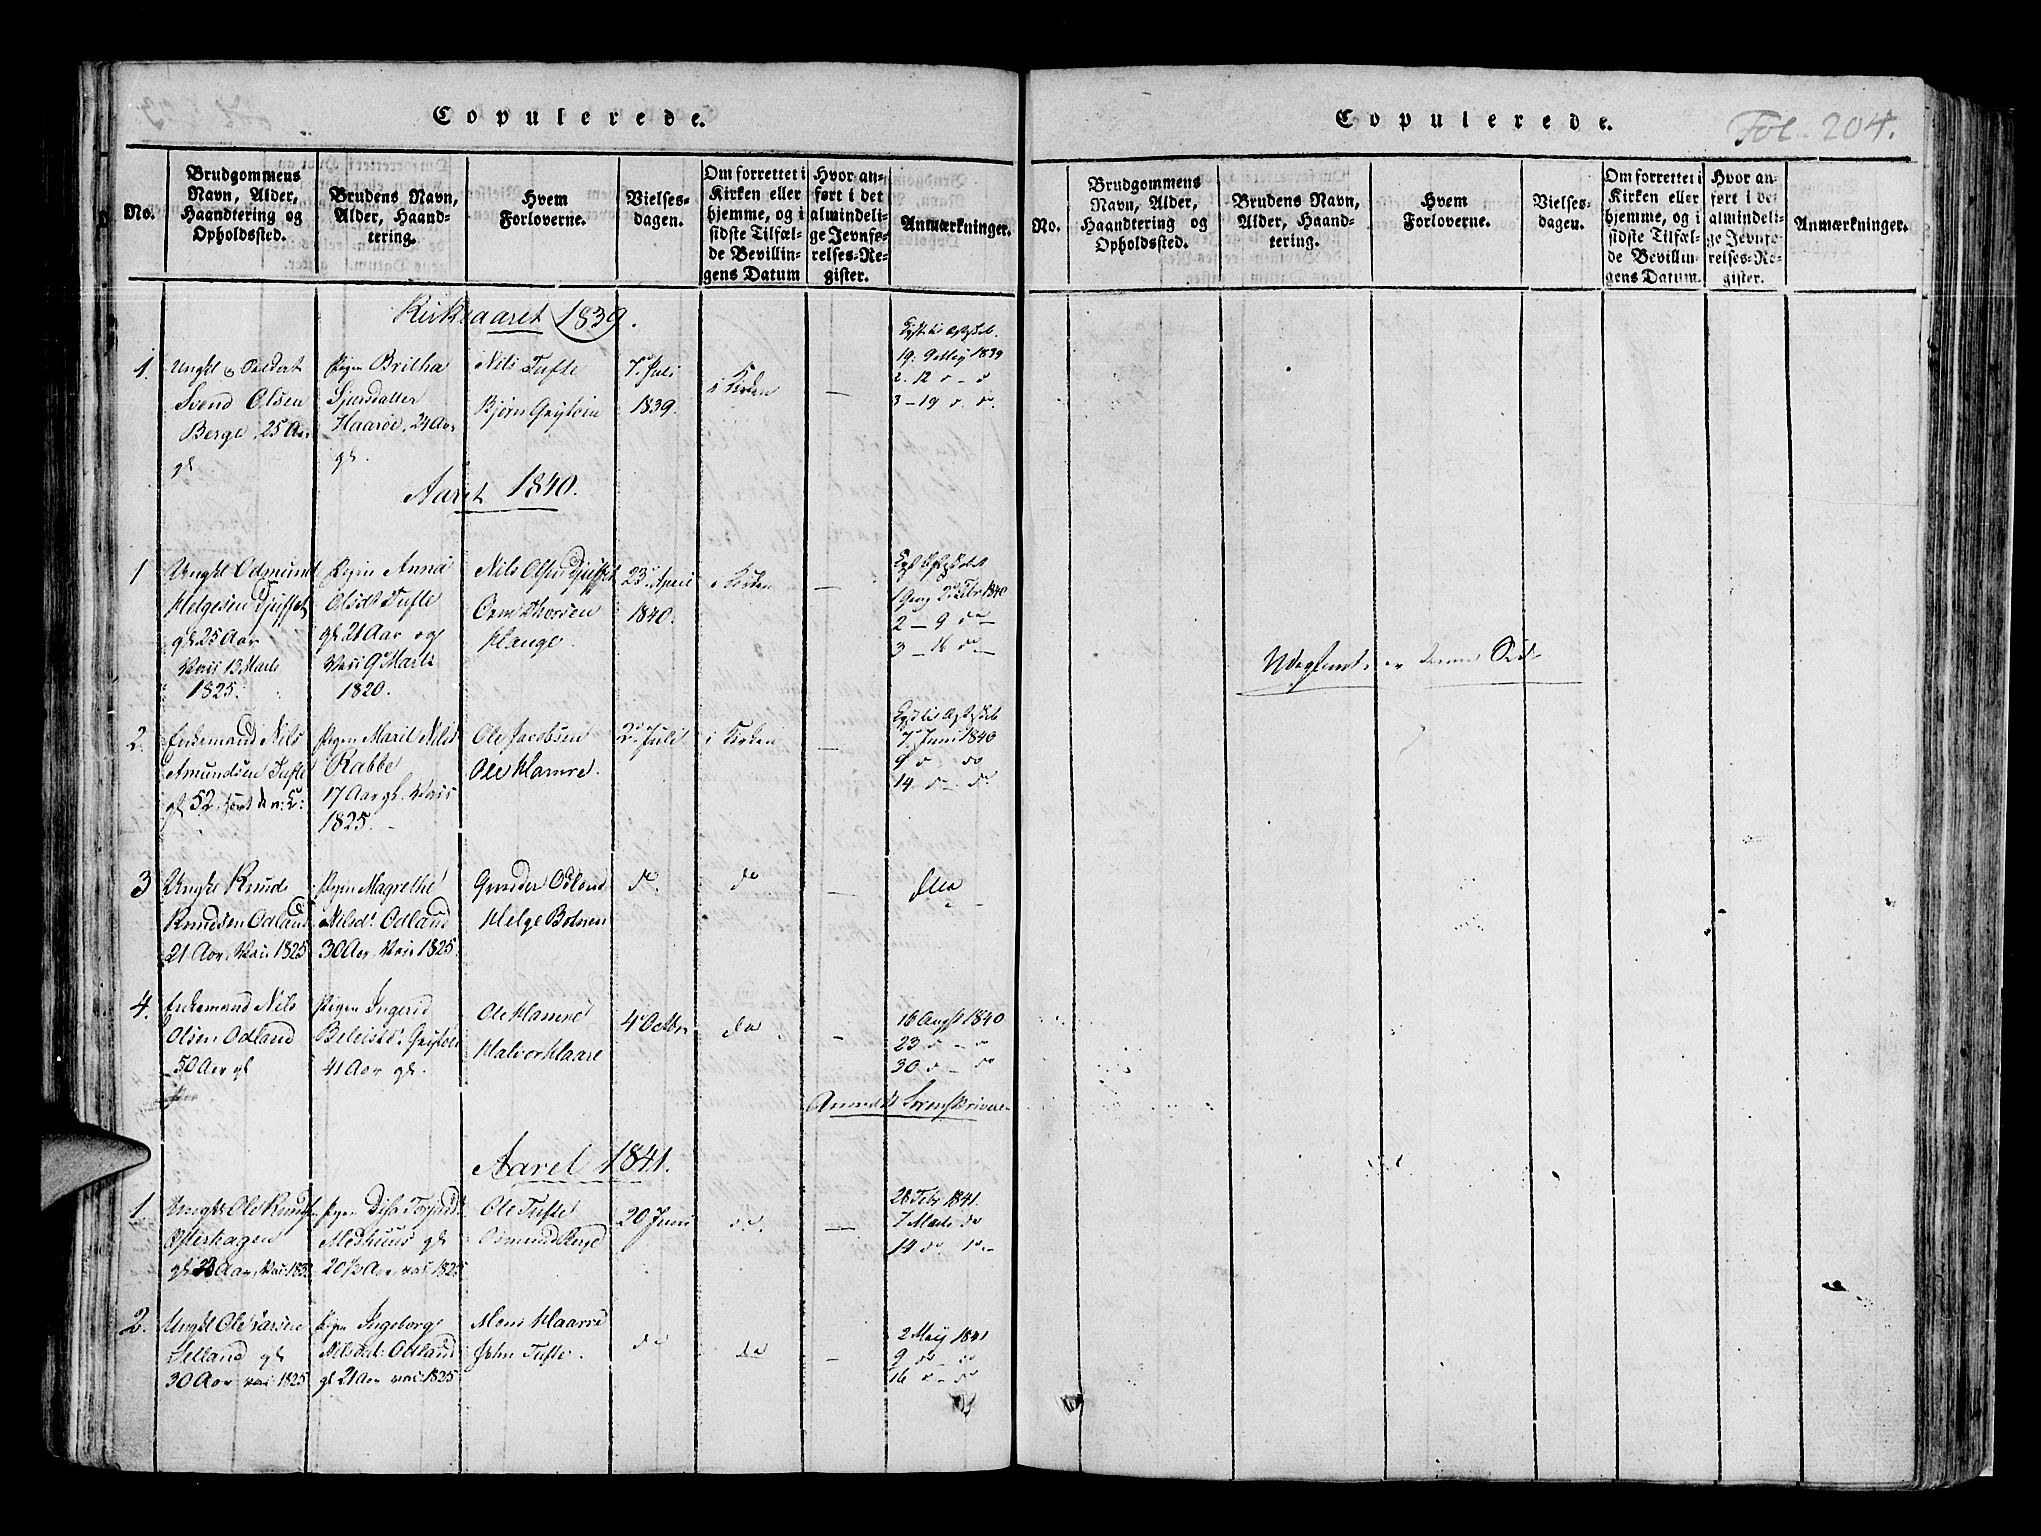 Copulerede.
No.
Brudgommens
Navn, Alder,
Haandtering og
Opholdssted.
Brudens Navn,
Alder, Haand-
tering.
Hvem
Forloverne.
Vielses-
dagen.
Om forrettet i
Kirken eller
hjemme, og i
sidste Tilfæl-
de Bevillin-
gens Datum
Hvor an-
ført i det
almindeli-
ge Jevnfø-
relses-Re-
gister.
Anmærkninger.
Kirkeaaret 1839.
1.
Svend Olsen
Berge, 25 Aar
gl
Pigen Britha
Sjursdatter
Haarøe, 24 Aar
gl.
Nils Tufte
Bjørn Grytvin
7de Juli
1839.
i Kirken
—
19. May 1839
2. 12 d - d
3 - 19 d. do.
Aaret 1840.
1
Ungkl Odmund
Helgesen Djuffet
gl 25 Aar
Vacs 13 Marts
1825.
Pigen Anna
Olsdt Tufte
gl 21 Aar og
Vacs 9 Marts
1820.
Nils Olsen Djuffet
Orm Thorsen
Hauge
23 April
1840.
i Kirken
—
2 - 9 do -
3 - 16 do -
2.
Enkemand Nils
Amundsen Tufte
gl 52
Pigen Marit Nilsd
Rabbe
17 Aar gl. Vacs
1825. -
Ole Jacobsen
Ole Hamre.
2 Juli
i Kirken
—
7 Juni 1840
9 d do
14 - d - do
3
Ungkl Knud
Knudsen Odland
21 Aar, Vacs 1825
Pigen Magrethe
Nilsdt Odland
30 Aar, Vacs 1825
Gunder Odland
Helge Botnen
do.
do
—
4.
Enkemand Nils
Olsen Odland
50 Aar gl
Pigen Ingerid
41 Aar gl.
Ole Hamre
Halvor Haare
4 Octbr
do
-
16 Augst 1840
23 d - d
30 d - do
Anmeldt Sorenskriveren
Aaret 1841.
1
Ungkl Ole Knuds
Østerhagen
Pigen
Meshuus gl
20 1/2 Aar, vac 1825
Ole Tufte
Osmund Berge
20 Juni
do.
—
28 Febr 1841.
7 Marts do
14 do.
2.
Ungkl Ole Larsen
Selland gl
30 Aar vac: 1825
Pigen Ingeborg
Nilsd: Odland
gl 21 Aar vac: 1825
Mons Haarre
John Tufte.
do
do
—
2 May 1841
9 do - do
16 d - do
Copulerede.
Fol. 204.
No.
Brudgommens
Navn, Alder,
Haandtering og
Opholdssted.
Brudens Navn,
Alder, Haand-
tering.
Hvem
Forloverne.
Vielses-
dagen.
Om forrettet i
Kirken eller
hjemme, og i
sidste Tilfæl-
de Bevillin-
gens Datum.
Hvor an-
ført i det
almindeli-
ge Jevnfø-
relses-Re-
gister.
Anmærkninger.
denne Side